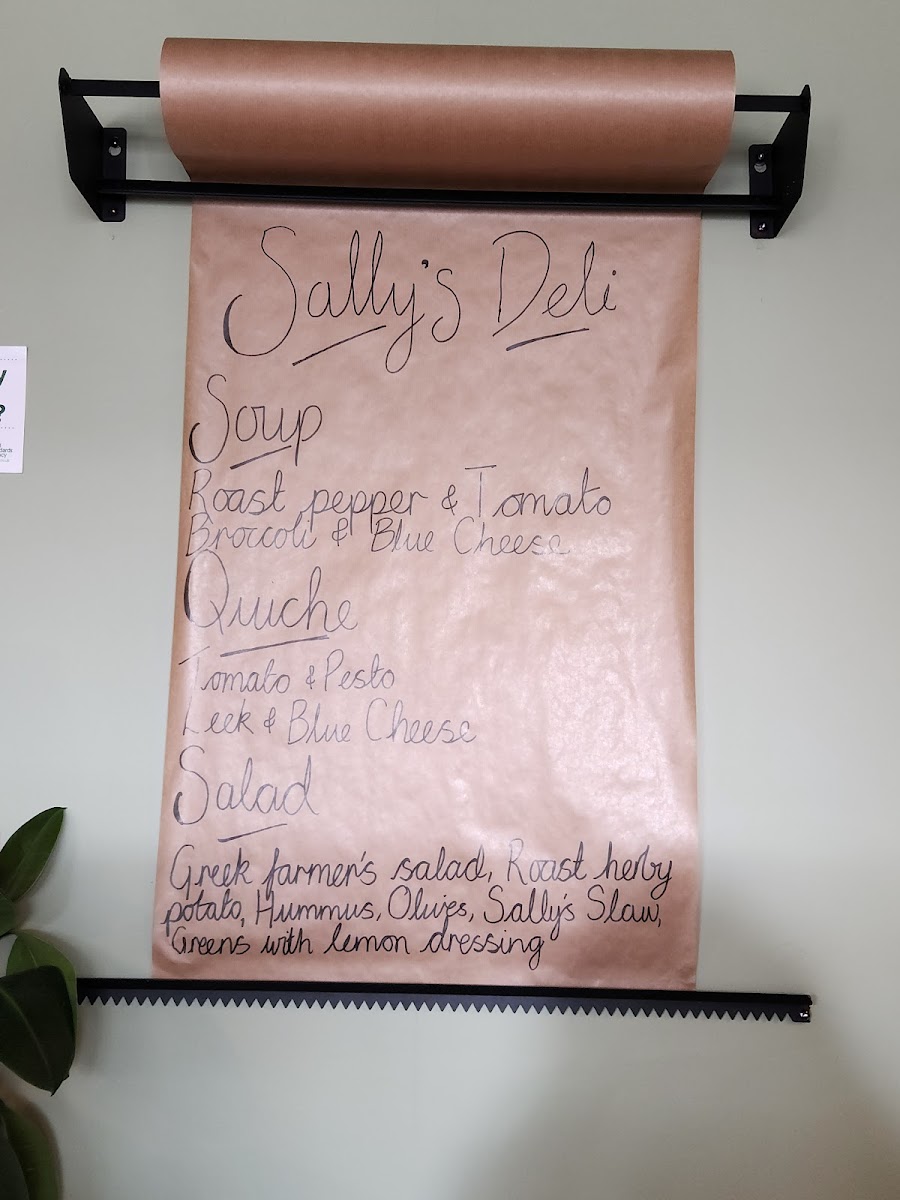 Sally's Deli
Soup
Roast pepper & Tomato
Broccoli & Blue Cheese
Quiche
Tomato & Pesto
Leek & Blue Cheese
Salad
Greek farmer's salad, Roast herby
potato, Hummus, Olives, Sally's Slaw,
Greens with lemon dressing
?